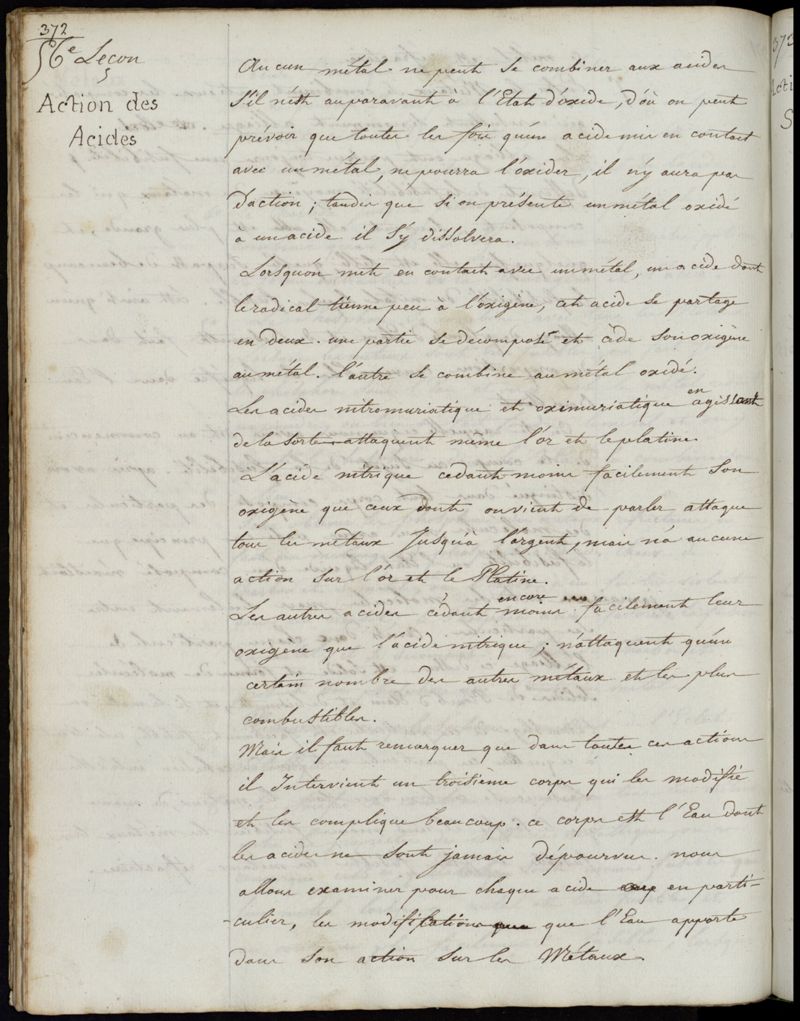 372
56e Leçon
Action des
Acides
Aucun métal ne peut se combiner aux acides
s'il n'est auparavant à l'Etat d'óxide, d'où on peut
prévoir que toutes les fois qu'un acide mis en contact
avec un métal, ne pourra l'óxider, il n'y aura pas
d'action ; tandis que si on présente un métal oxidé
à un acide il s'y dissolvera.
Lorsqu'on met en contact avec un métal, un acide dont
le radical tienne peu à l'óxigène, cet acide se partage
en deux. une partie se décompose et cède son oxigène
au métal. l'autre se combine au métal oxidé.
Les acides nitromuriatique et oximuriatique en agissant
de la sorte attaquent même l'or et le platine.
L'acide nitrique cedant moins facilement son
oxigène que ceux dont on vient de parler attaque
tous les métaux jusqu'à l'argent, mais n'a aucune
action sur l'or et le Platine.
Les autres acides cédant encore moins facilement leur
oxigène que l'acide nitrique ; n'attaquent qu'un
certain nombre des autres métaux et les plus
combustibles.
Mais il faut remarquer que dans toutes ces actions
il Intervient un troisième corps qui les modifie
et les complique beaucoup. ce corps est l'Eau dont
les acides ne sont jamais dépourvus. nous
allons examiner pour chaque acide en parti-
-culier, les modifications que l'Eau apporte
dans son action sur les Métaux.
373